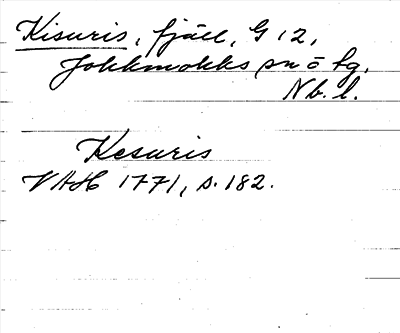 Kisuris, fjäll, G 12,
Jokkmokks sn o tg.
Nb. l.
Kesuris
VAH 1771, s. 182.